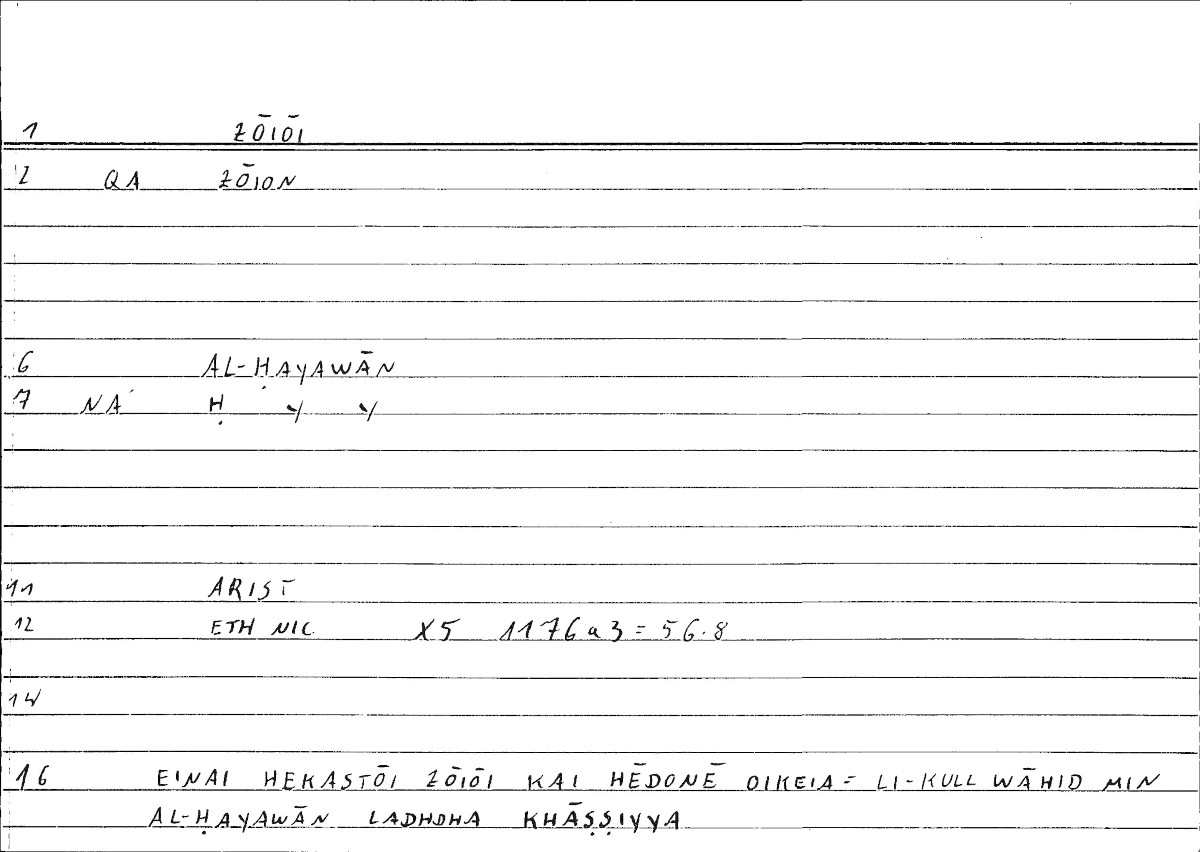 1 ZŌIŌI
2 QA ZŌION
6 AL-ḤAYAWĀN
7 NA Ḥ Y Y
11 ARIST
12 ETH NIC X5 1176a3=56.8
14
16 EINAI HEKASTŌI ZŌIŌI KAI HĒDONĒ OIKEIA= LI-KULL WĀHID MIN
AL-ḤAYAWĀN LADHDHA KHĀṢṢIYYA